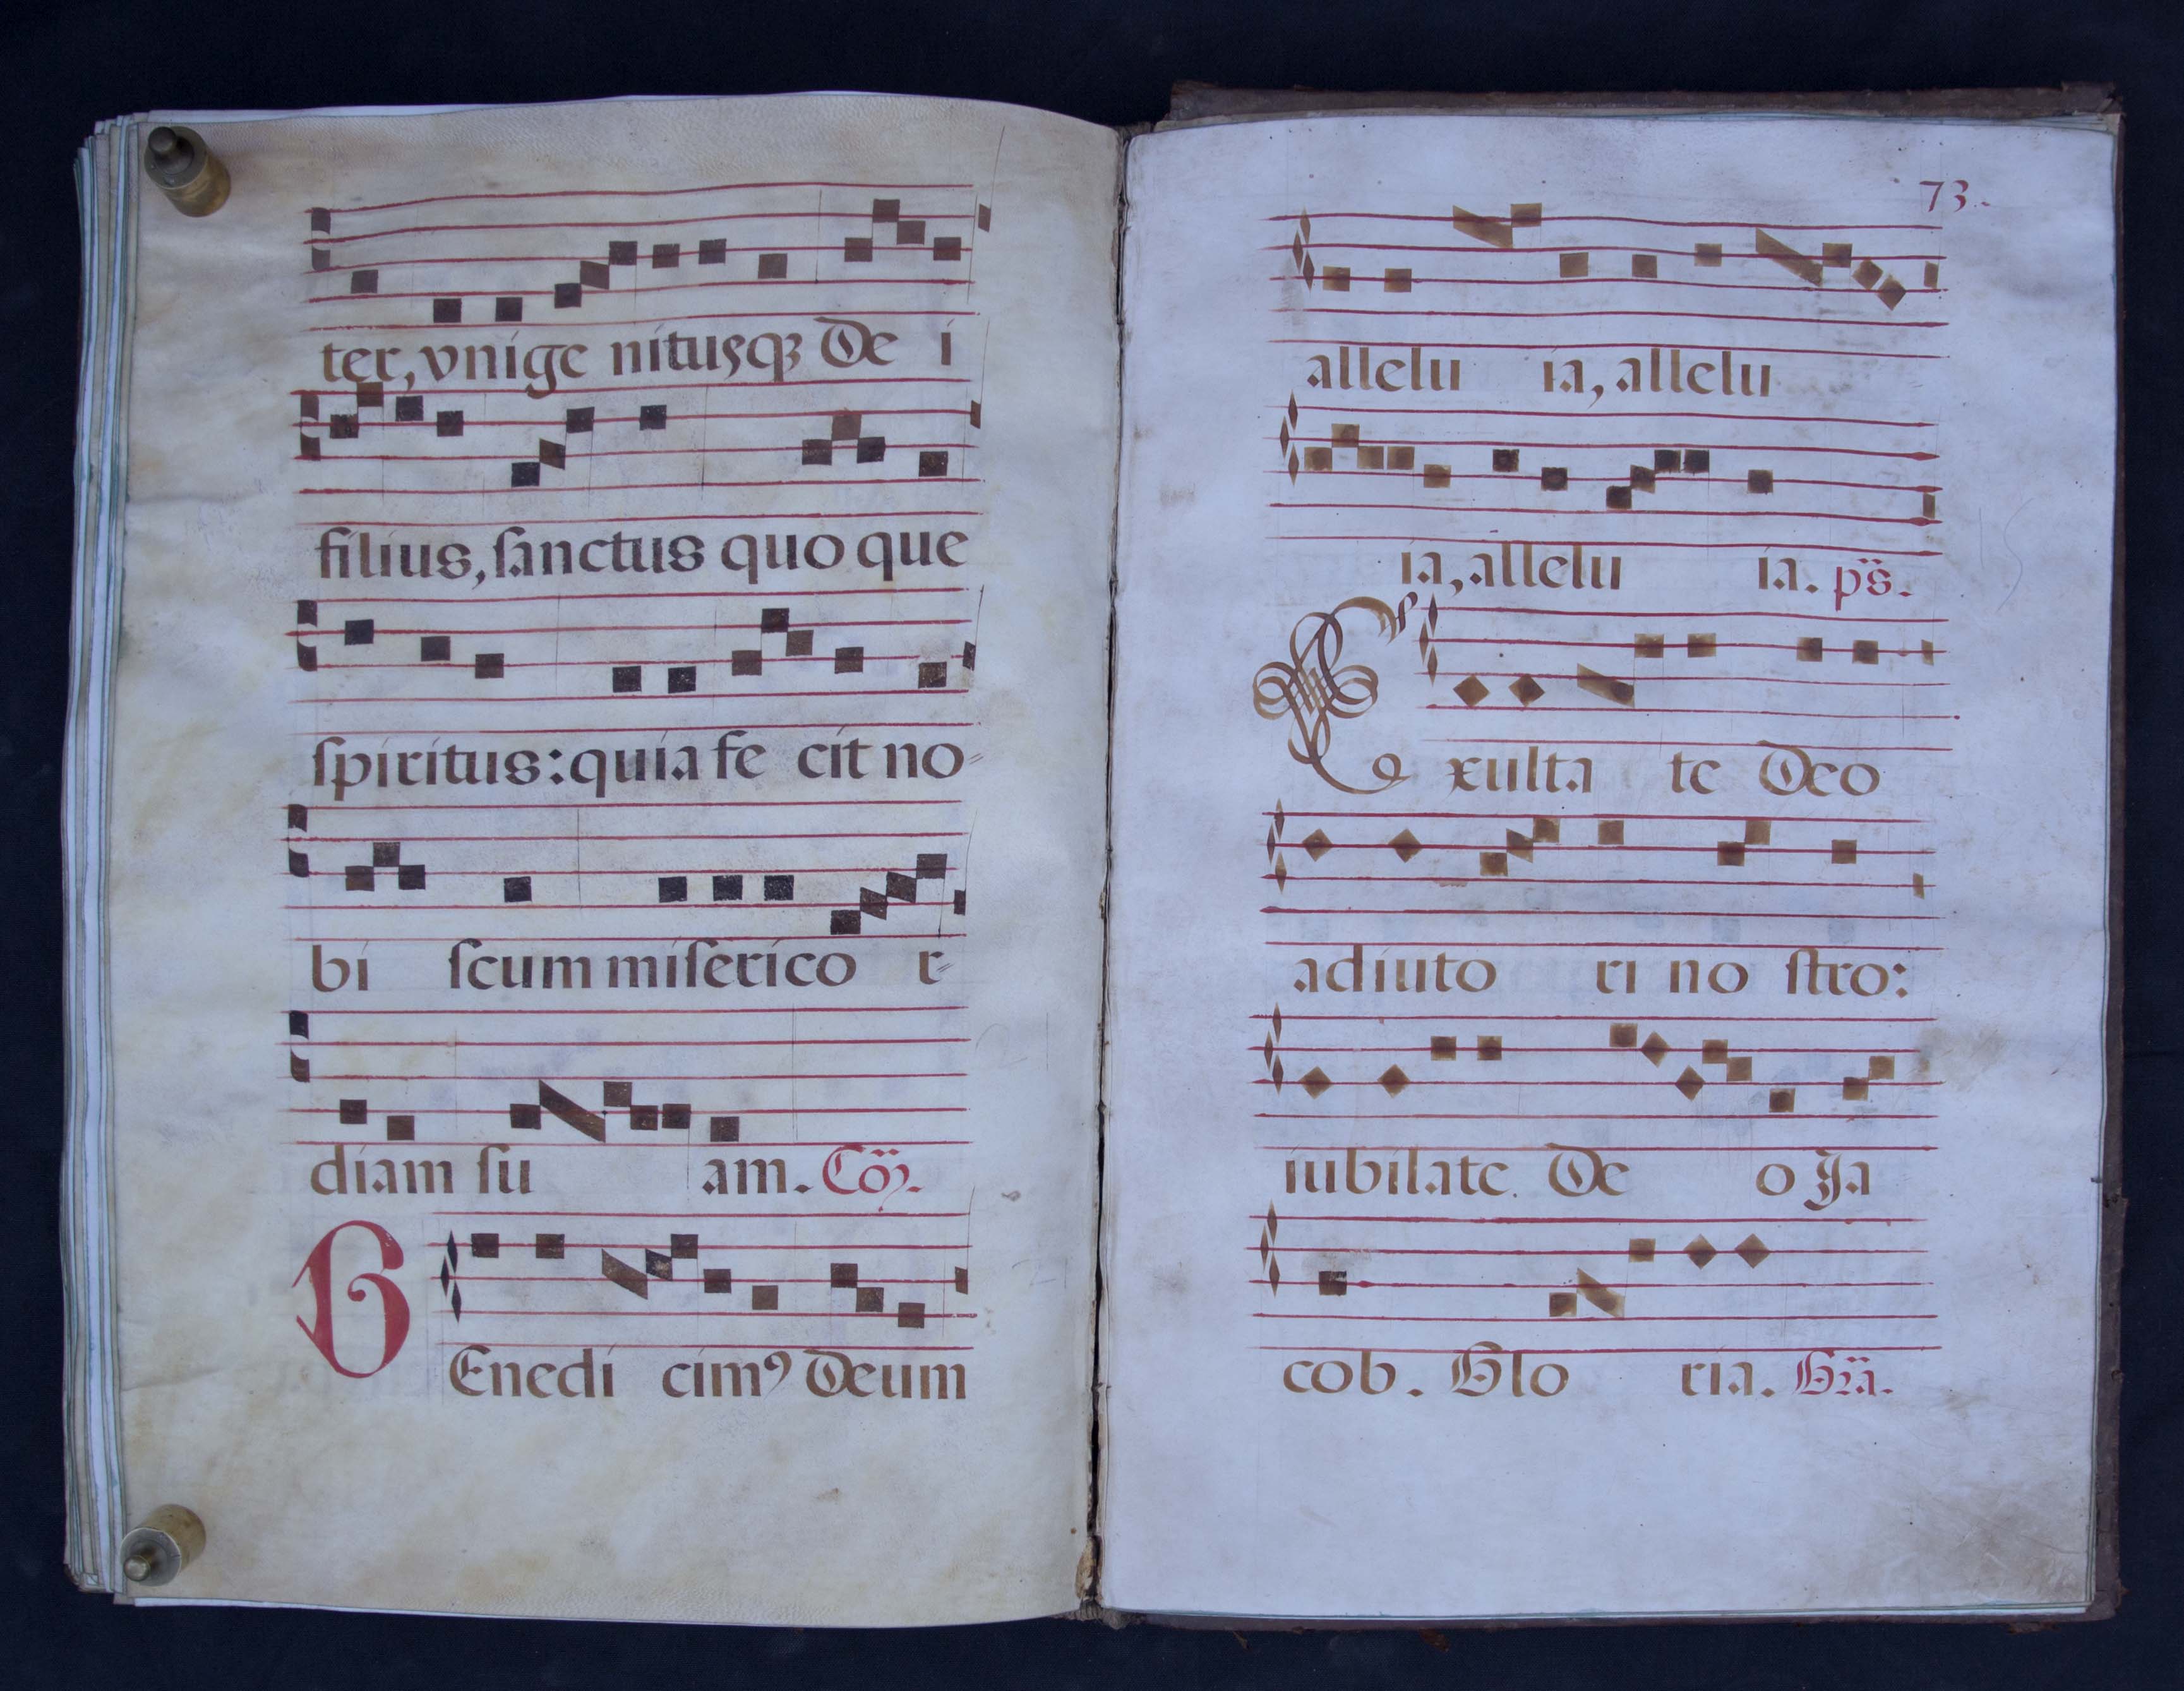 ter, vnige nitusqꝫ De i
filius, ſanctus quo que
ſpiritus: quia fe cit no-
bi ſcum miſerico r-
diam ſu am. Cõ.
BEnedi cimꝰ Deum
73.
allelu ia, allelu
ia, allelu ia. ps.
Exulta te Deo
adiuto ri no ſtro:
iubilate De o Ja
cob. Glo ria. Gra.